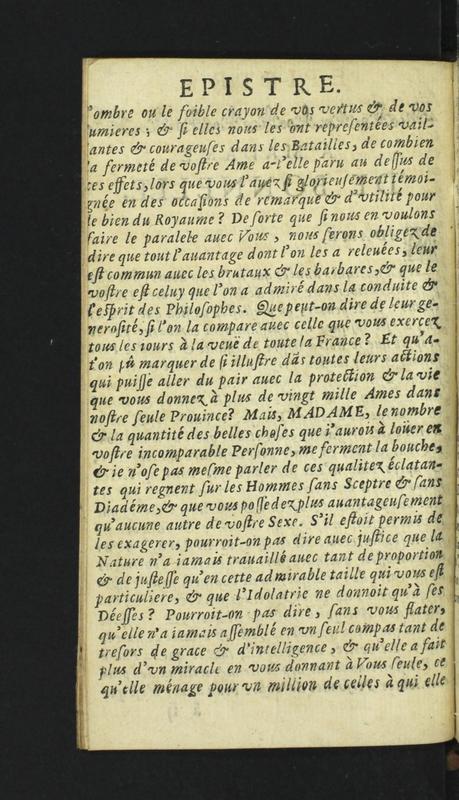 EPISTRE.
l'ombre ou le foible crayon de vos vertus & de vos
lumieres ; & si elles nous les ont representées vail-
lantes & courageuses dans les Batailles, de combien
la fermeté de vostre Ame a-t'elle paru au dessus de
ces effets, lors que vous l'auez si glorieusement témoi-
gnée en des occasions de remarque & d'vtilité pour
le bien du Royaume ? De sorte que si nous en voulons
faire le paralele auec Vous , nous serons obligez de
dire que tout l'auantage dont l'on les a releuées, leur
est commun auec les brutaux & les barbares, & que le
vostre est celuy que l'on a admiré dans la conduite &
l'esprit des Philosophes. Que peut-on dire de leur ge-
nerosité, si l'on la compare auec celle que vous exercez
tous les iours à la veuë de toute la France ? Et qu'a-
t'on pû marquer de si illustre dãs toutes leurs actions
qui puisse aller du pair auec la protection & la vie
que vous donnez à plus de vingt mille Ames dans
nostre seule Prouince? Mais, MADAME, le nombre
& la quantité des belles choses que i'aurois à loüer en
vostre incomparable Personne, me ferment la bouche,
& ie n'ose pas mesme parler de ces qualitez éclatan-
tes qui regnent sur les Hommes sans Sceptre & sans
Diadéme, & que vous possedez plus auantageusement
qu'aucune autre de vostre Sexe. S'il estoit permis de
les exagerer, pourroit-on pas dire auec justice que la
Nature n'a iamais trauaillé auec tant de proportion
& de justesse qu'en cette admirable taille qui vous est
particuliere, & que l'Idolatrie ne donnoit qu'à ses
Déesses ? Pourroit-on pas dire, sans vous flater,
qu'elle n'a iamais assemblé en vn seul compas tant de
tresors de grace & d'intelligence, & qu'elle a fait
plus d'vn miracle en vous donnant à Vous seule, ce
qu'elle ménage pour vn million de celles à qui elle